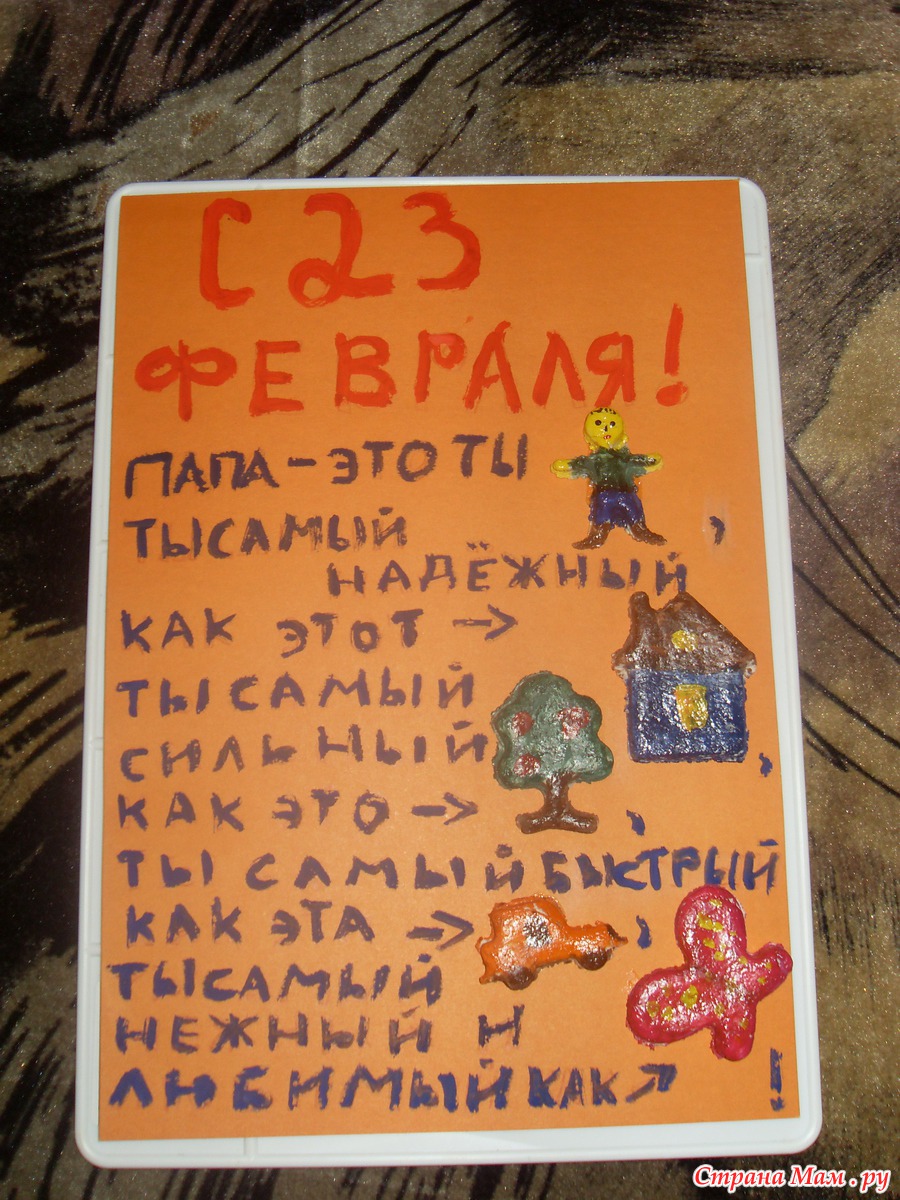 С 23
ФЕВРАЛЯ!
ПАПА-ЭТО ТЫ
ТЫ САМЫЙ ,
НАДЁЖНЫЙ
КАК ЭТОТ →
ТЫ САМЫЙ
СИЛЬНЫЙ ,
КАК ЭТО → ,
ТЫ САМЫЙ БЫСТРЫЙ
КАК ЭТА → ,
ТЫ САМЫЙ
НЕЖНЫЙ И
ЛЮБИМЫЙ КАК ↗ !
Страна Мам.ру